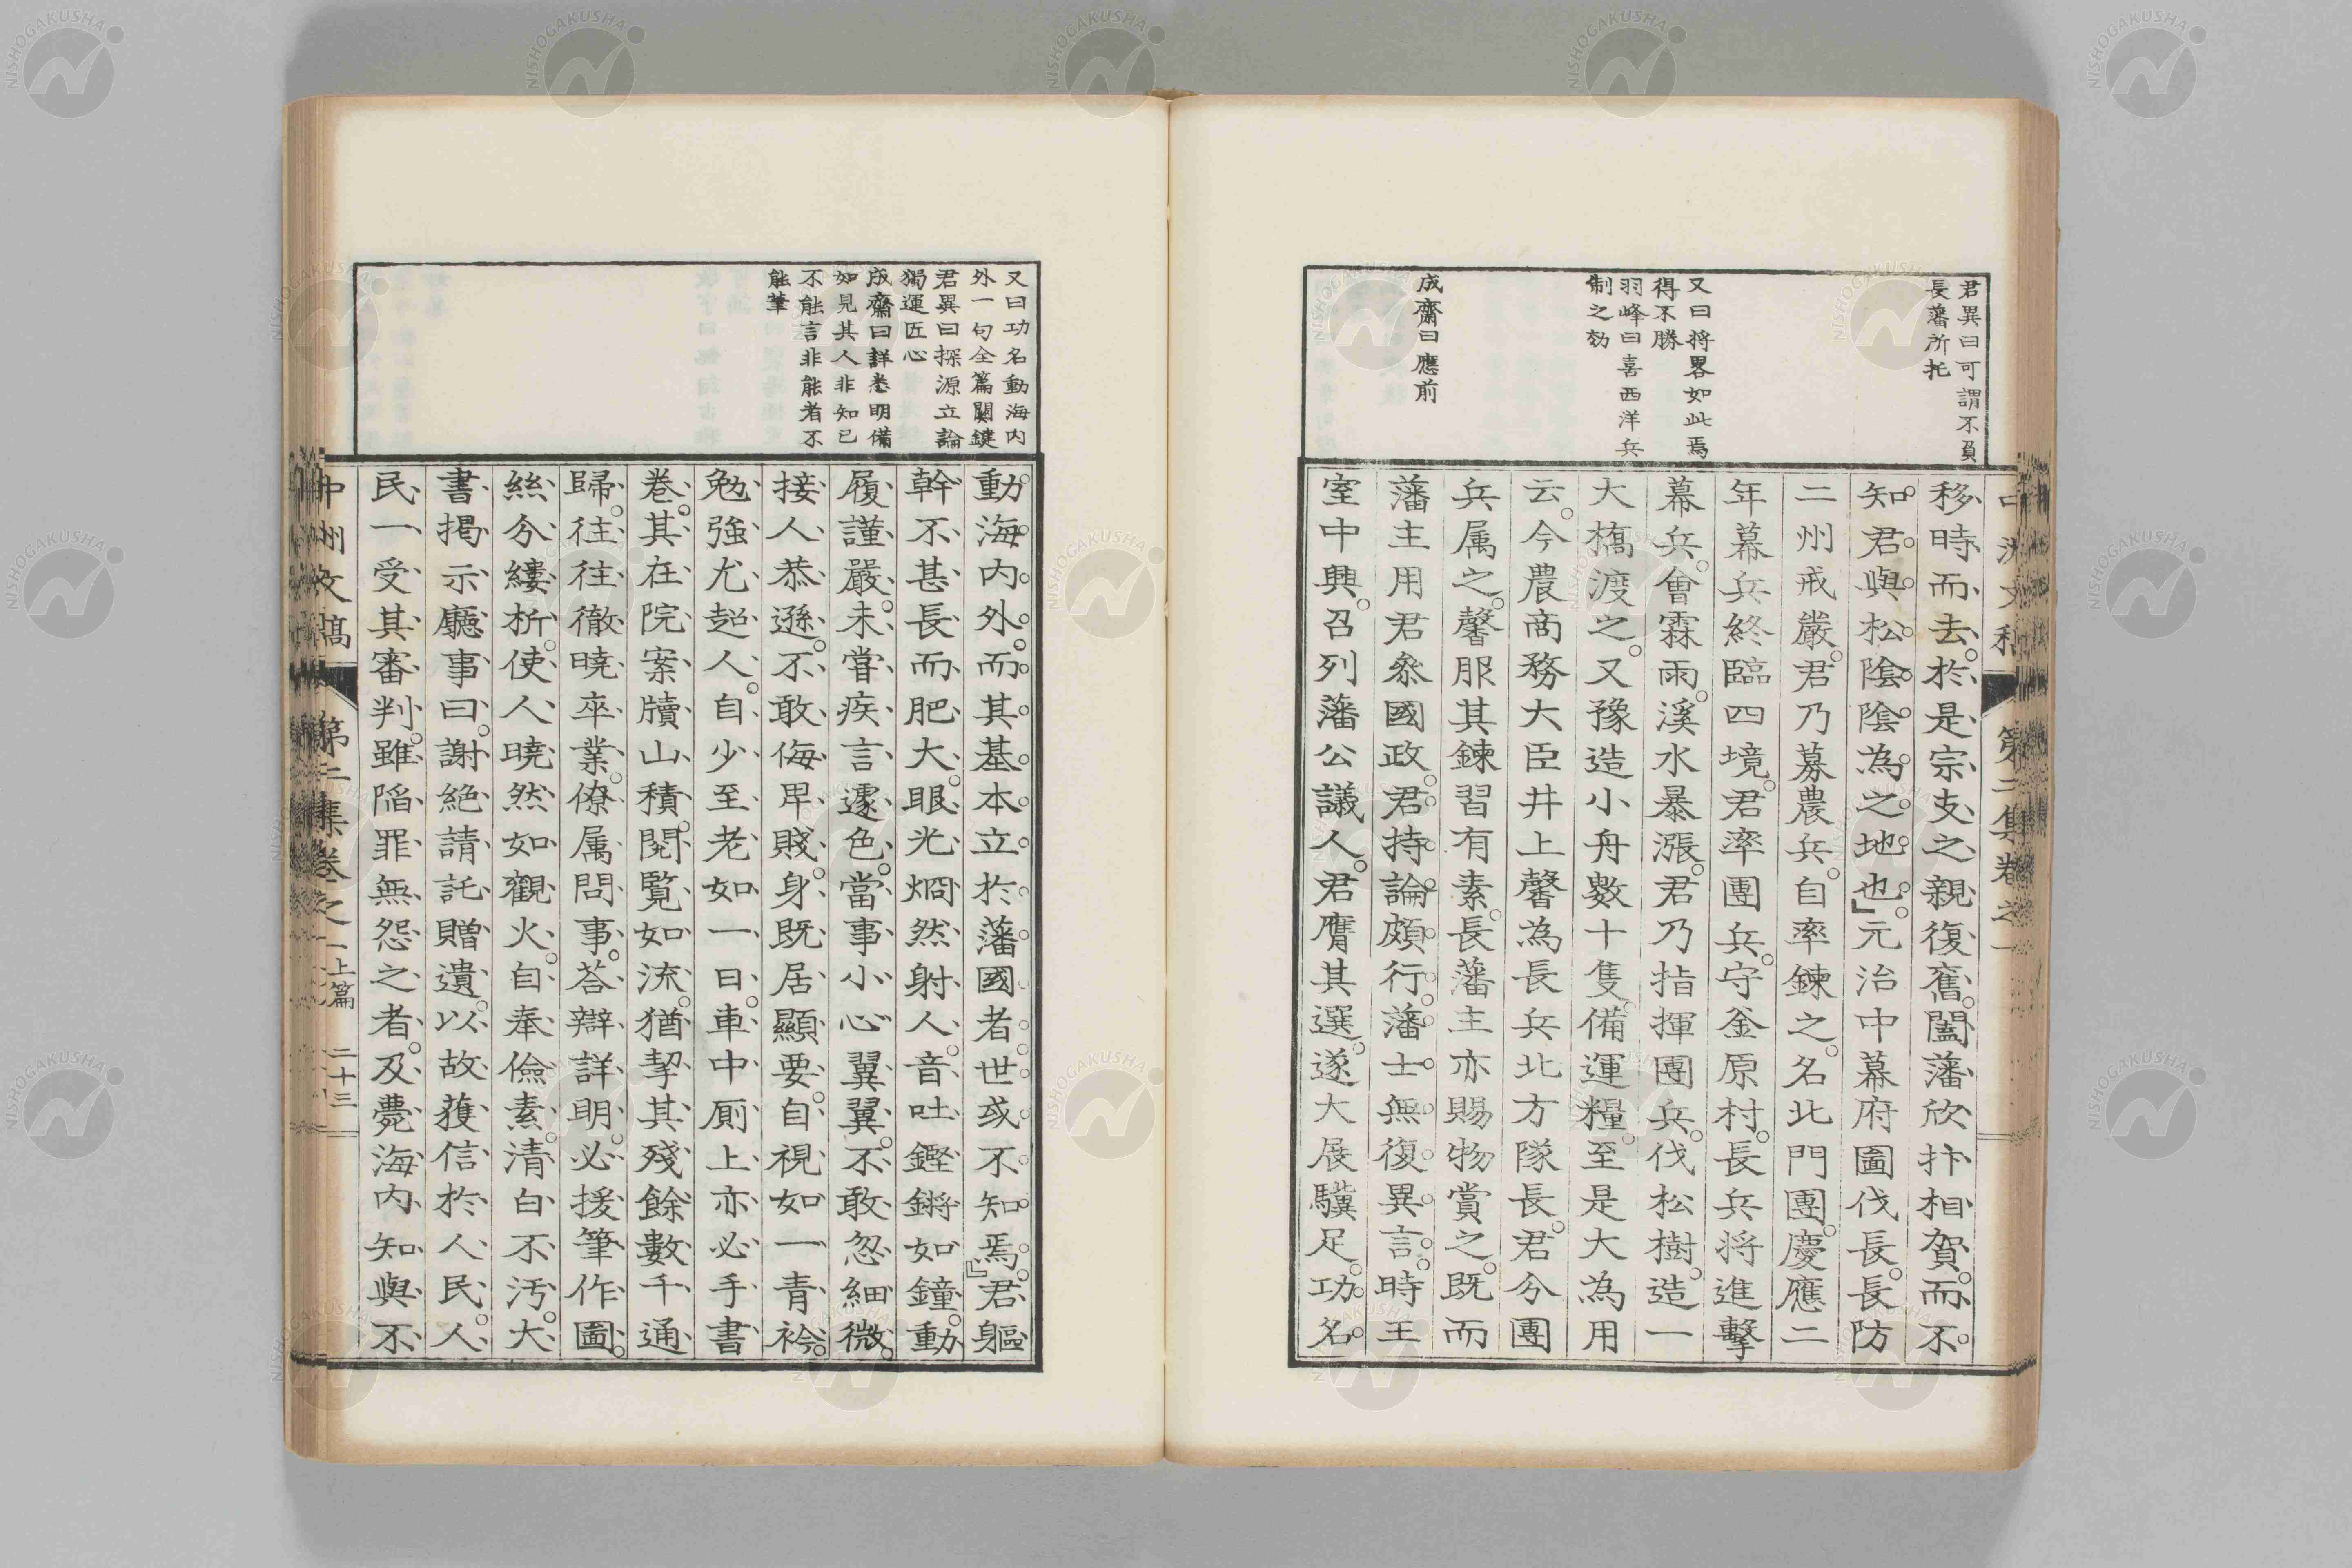 君異曰可謂不負
長藩所托
又曰將畧如此焉
得不勝
羽峰曰喜西洋兵
制之効
成齋曰應前
移時而去。於是宗支之親復舊。闔藩欣抃相賀。而不
知君與松陰陰為之地也。』元治中幕府圖伐長。長防
二州戒嚴。君乃募農兵。自率鍊之。名北門團。慶應二
年幕兵終臨四境。君率團兵。守釜原村。長兵将進擊
幕兵。會霖雨。溪水暴漲。君乃指揮團兵。伐松樹。造一
大橋渡之。又豫造小舟數十隻。備運糧。至是大為用
云。今農商務大臣井上馨為長兵北方隊長。君分團
兵属之。馨服其鍊習有素。長藩主亦賜物賞之。既而
藩主用君叅國政。君持論頗行。藩士無復異言。時王
室中興。召列藩公議人。君膺其選。遂大展驥足。功名
又曰功名動海内
外一句全篇關鍵
君異曰探源立論
獨運匠心
成齋曰詳悉明備
如見其人非知已
不能言非能者不
能筆
動海内外。而其基本立於藩國者。世或不知焉。』君軀
幹不甚長而肥大。眼光烱然射人。音吐鏗鏘如鐘。動
履謹嚴。未甞疾言遽色。當事小心翼翼。不敢忽細微。
接人恭遜。不敢侮卑賤。身既居顯要。自視如一青衿。
勉強尤超人。自少至老如一日。車中厠上亦必手書
卷。其在院案牘山積。閲覧如流。猶挈其殘餘數千通
歸。徃徃徹曉卒業。僚属問事。荅辯詳明。必援筆作圖。
絲分縷析。使人曉然如觀火。自奉儉素。清白不汚。大
書揭示廳事曰。謝絶請託贈遺。以故獲信於人民。人
民一受其審判。雖陷罪無怨之者。及薨海内知與不
中州文稿 第二集卷之一 上篇 二十三